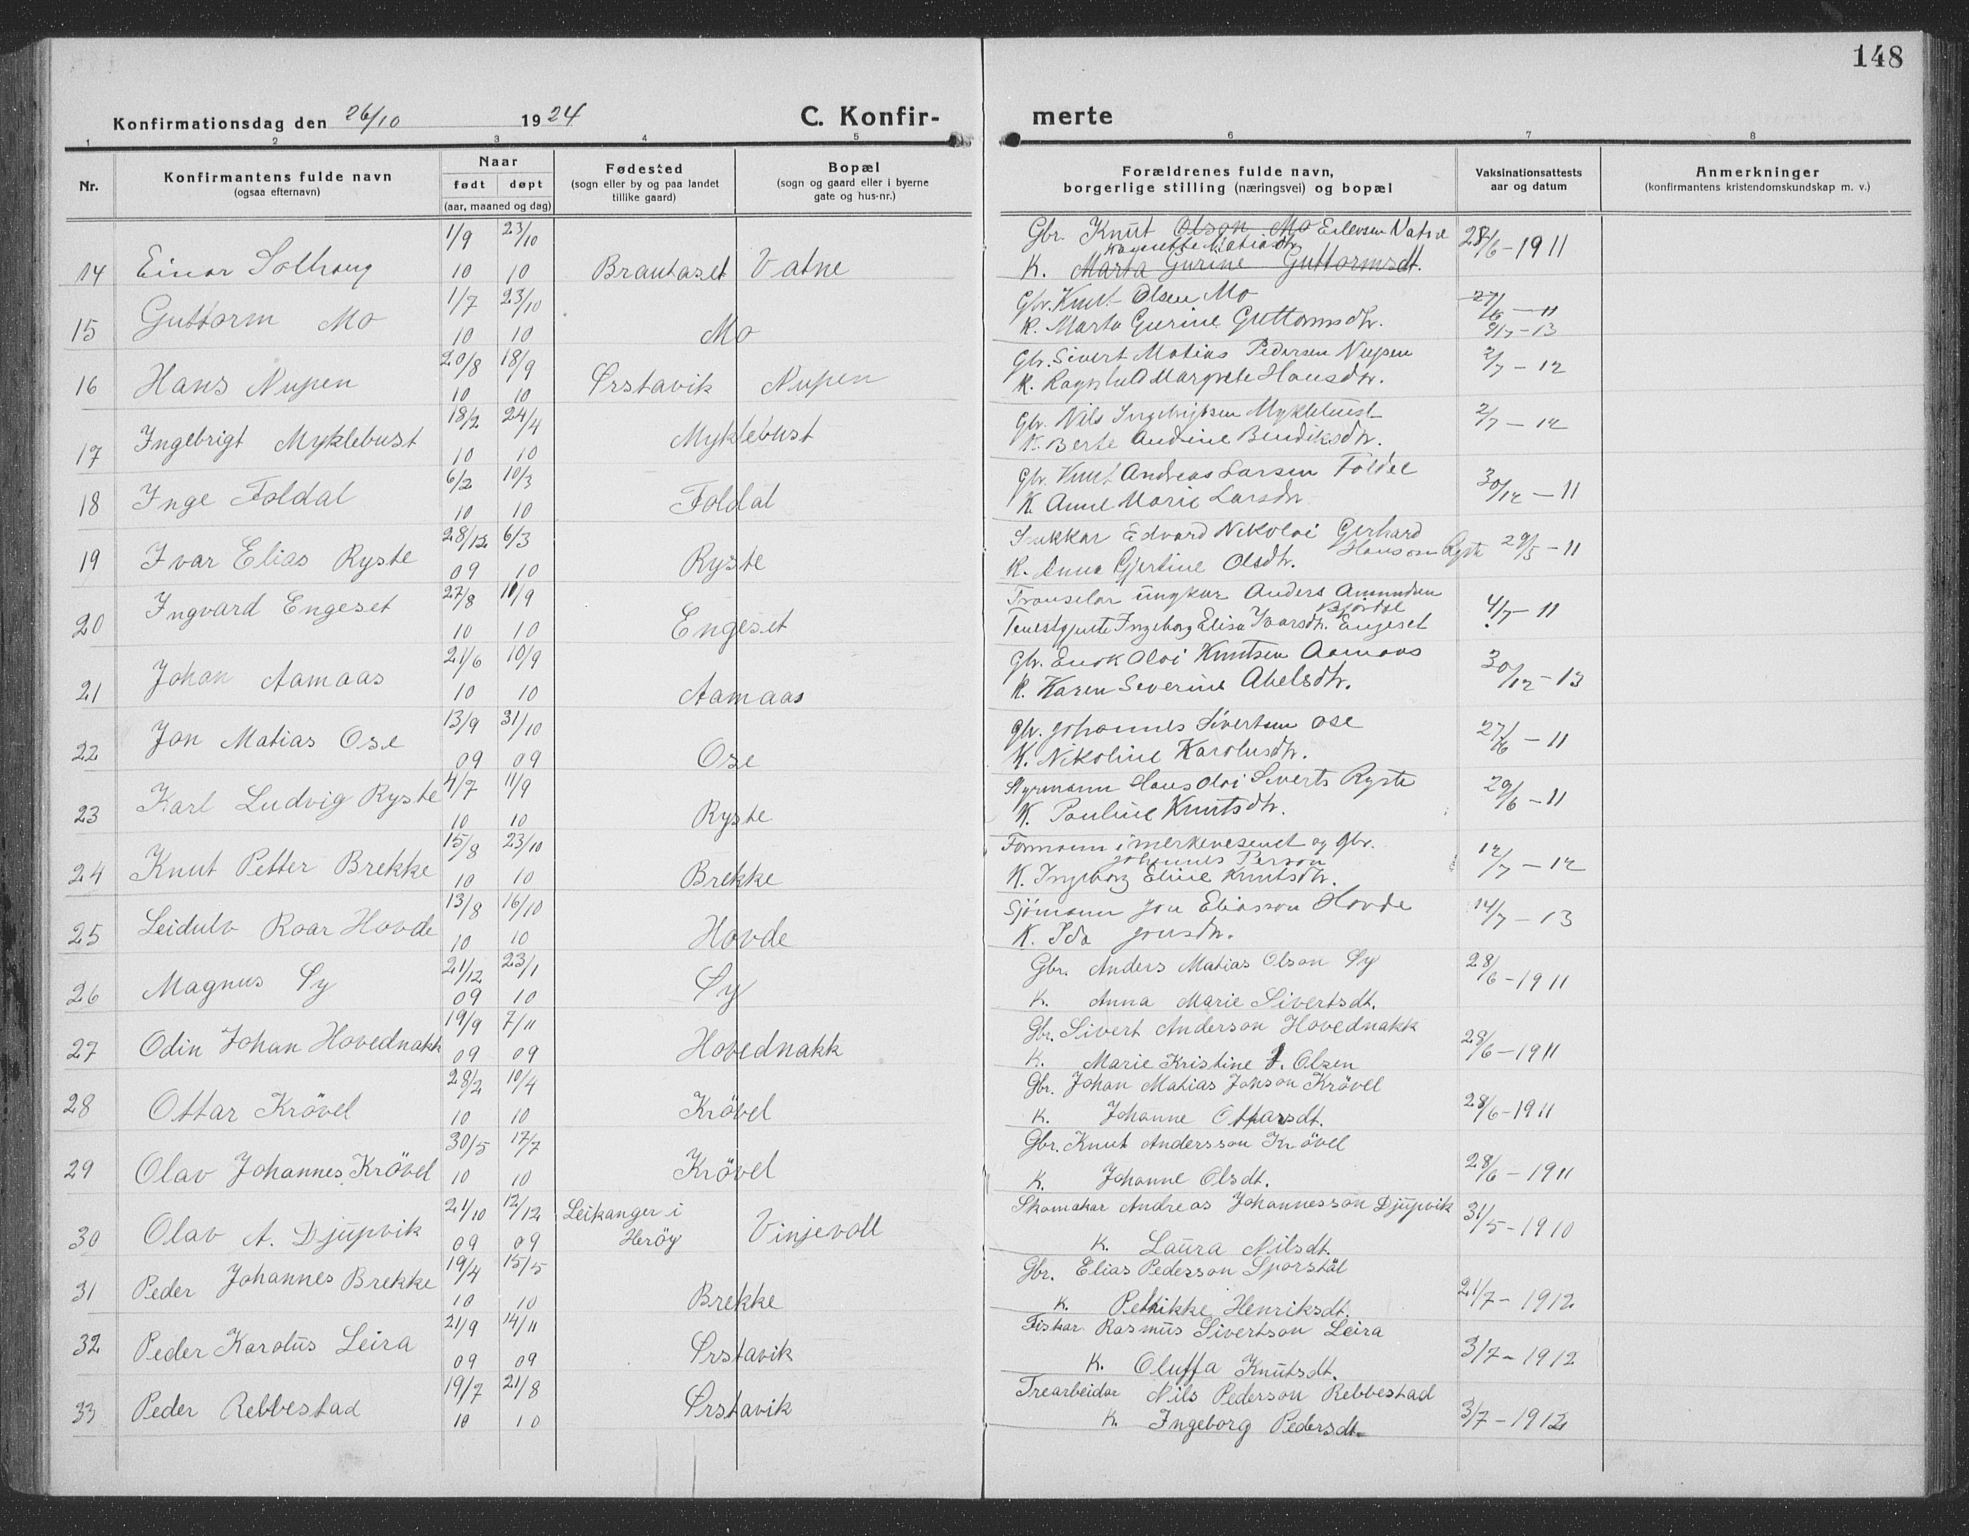 148
Konfirmationsdag den 26/10 1924 C. Konfirmerte
1 2 3 4 5 6 7 8
Nr. Konfirmantens fulde navn (ogsaa efternavn) Naar født døpt (aar, maaned og dag) Fødested (sogn eller by og paa landet tillike gaard) Bopæl (sogn og gaard eller i byerne gate og hus-nr.) Forældrenes fulde navn, borgerlige stilling (næringsvei) og bopæl Vaksinationsattests aar og datum Anmerkninger (konfirmantens kristendomskundskap m. v.)
14 Einar Solhaug 1/9 10 23/10 10 Brautaset Vatne Gbr. Knut Olson Mo Eilevsen Vatne 28/6-1911
K. Marta Gurine Guttormsdt.
15 Guttorm Mo 1/7 10 23/10 10 Mo Gbr. Knut Olsen Mo 27/6-11
K. Marta Gurine Guttormsdtr. 9/7-13
16 Hans Nupen 20/8 10 18/9 10 Ørstavik Nupen Gbr. Sivert Matias Pedersen Nupen 2/7-12
K. Ragnhild Margrete Hansdtr.
17 Ingebrigt Myklebust 18/2 10 24/4 10 Myklebust Gbr. Nils Ingebrigtsen Myklebust 2/7-12
K. Berte Andrine Bendiksdtr.
18 Inge Foldal 6/2 10 10/3 10 Foldal Gbr. Knut Andreas Larsen Foldal 30/12-11
K. Anne Marie Larsdtr.
19 Ivar Elias Ryste 28/12 09 6/3 10 Ryste Snikkar Edvard Nikolai Gerhard Hansson Ryste 29/5-11
K. Anna Gjertine Olsdtr.
20 Ingvard Engeset 27/8 10 11/9 10 Engeset ungkar Anders Amundsen Bjørdal 4/7-11
Ingeborg Elisa Ivarsdtr. Engeset
21 Johan Aamaas 21/6 10 10/9 10 Aamaas Gbr. Enok Olai Knutsen Aamaas 30/12-13
K. Karen Severine Abelsdtr.
22 Jon Matias Ose 13/9 09 31/10 09 Ose Gbr. Johannes Sivertsen Ose 27/6-11
K. Nikoline Karolusdtr.
23 Karl Ludvig Ryste 4/7 10 11/9 10 Ryste Styrmann Hans Olai Siverts Ryste 29/6-11
K. Pauline Knutsdtr.
24 Knut Petter Brekke 15/8 10 23/10 10 Brekke Formann i merkevesenet og gbr. 12/7-12
Johannes Person
K. Ingeborg Eline Knutsdtr.
25 Leidulv Roar Hovde 13/8 10 16/10 10 Hovde Sjømann Jon Eliasson Hovde 14/7-13
K. Ida Jonsdtr.
26 Magnus Øy 21/12 09 23/1 10 Øy Gbr. Anders Matias Olson Øy 28/6-1911
K. Anna Marie Sivertsdt.
27 Odin Johan Hovednakk 19/9 09 7/11 09 Hovednakk Gbr. Sivert Anderson Hovednakk 28/6-1911
K. Marie Kristine J. Olsen
28 Ottar Krövel 28/2 10 10/4 10 Krövel Gbr. Johan Matias Jonson Krövel 28/6-1911
K. Johanne Ottarsdt.
29 Olav Johannes Krövel 30/5 10 17/7 10 Krövel Gbr. Knut Andersson Krövel 28/6-1911
K. Johanne Olsdt.
30 Olav A. Djupvik 21/10 09 12/12 09 Leikanger i Heröy Vinjevoll Skomakar Andreas Johannesson Djupvik 31/5-1910
K. Laura Nilsdt.
31 Peder Johannes Brekke 19/4 10 15/5 10 Brekke Gbr. Elias Pederson Sporstøl 21/7-1912
K. Petrikke Henriksdt.
32 Peder Karolus Leira 21/9 09 14/11 09 Ørstavik Fiskar Rasmus Sivertson Leira 3/7-1912
K. Oluffa Knutsdt.
33 Peder Rebbestad 19/7 10 21/8 10 Ørstavik Trearbeidar Nils Pederson Rebbestad 3/7-1912
K. Ingeborg Pedersdt.